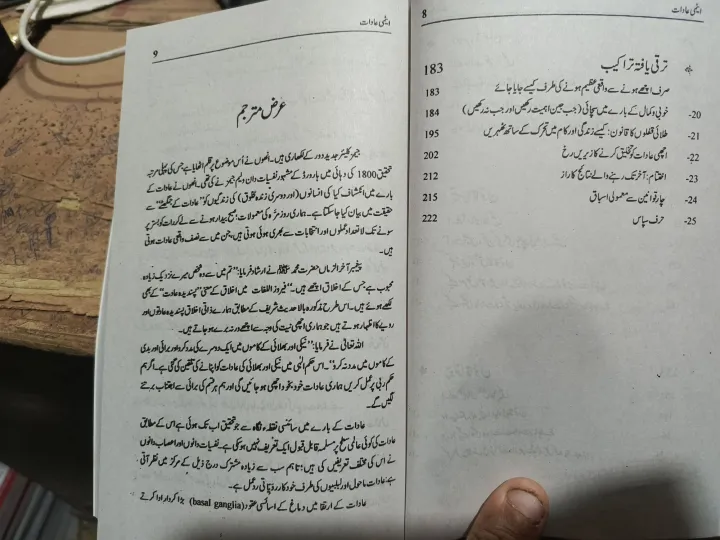 ایٹمی عادات
8
ترقی یافتہ تراکیب
183
صرف اچھے ہونے سے واقعی عظیم ہونے کی طرف کیسے جایا جائے
183
20- خوبی و کمال کے بارے میں سچائی (جب جین اہمیت رکھیں اور جب نہ رکھیں)
184
21- طلائی قفلوں کا قانون: کیسے زندگی اور کام میں تحرک کے ساتھ ٹھہریں
195
22- اچھی عادات کو تخلیق کرنے کا زیریں رخ
202
23- اختتام: آخر تک رہنے والے نتائج کا راز
212
24- چار قوانین سے معمولی اسباق
215
25- حرف سپاس
222
ایٹمی عادات
9
عرض مترجم
جیمز کلیئر جدید دور کے لکھاری ہیں۔ انھوں نے اُس موضوع پر قلم اٹھایا ہے جس کی پہلی مرتبہ
تحقیق 1800 کی دہائی میں ہارورڈ کے مشہور نفسیات دان ولیم جیمز نے کی تھی۔ انھوں نے عادات کے
بارے میں انکشاف کیا کی انسانوں (اور دوسری زندہ مخلوق) کی زندگیوں کو "عادات کے جمگھٹے" سے
حقیقت میں بیان کیا جا سکتا ہے۔ ہماری روز مرّہ کی معمولات؛ صبح بیدار ہونے سے لے کر رات کو بستر پر
سونے تک لاتعداد عملوں اور انتخابات سے بھری ہوئی ہوتی ہیں، جن میں سے نصف واقعی عادات ہوتی
ہیں۔
پیغمبر آخر الزماں حضرت محمد ﷺ نے ارشاد فرمایا: "تم میں سے وہ شخص میرے نزدیک زیادہ
محبوب ہے جس کے اخلاق اچھے ہیں۔" فیروز اللغات میں اخلاق کے معنی "پسندیدہ عادت" کے بھی
لکھے ہوئے ہیں۔ اس طرح مذکورہ بالا حدیث شریف کے مطابق ہمارے ذاتی اخلاق پسندیدہ عادتوں اور
رویے کا اظہار ہوتے ہیں جو ہماری اچھی نیت کی وجہ سے اچھے ورنہ برے ہو جاتے ہیں۔
اللہ تعالیٰ نے فرمایا: "نیکی اور بھلائی کے کاموں میں ایک دوسرے کی مدد کرو اور برائی اور بدی
کے کاموں میں مدد نہ کرو"۔ اس حکم الٰہی میں نیکی اور بھلائی کی عادات کو اپنانے کی تلقین کی گئی ہے۔ اگر ہم
حکم ربی پر عمل کریں ہماری عادات خود بخود اچھی ہو جائیں گی اور ہم ہر قسم کی برائی سے اجتناب برتنے
لگیں گے۔
عادات کے بارے میں سائنسی نقطہء نگاہ سے جو تحقیق اب تک ہوئی ہے اس کے مطابق
عادات کی کوئی عالمی سطح پر مسلمہ قابل قبول ایک تعریف نہیں ہو سکی ہے۔ نفسیات دانوں اور اعصاب دانوں
نے اس کی مختلف تعریفیں کی ہیں؛ تاہم سب سے زیادہ مشترک درج ذیل کے مرکز میں نظر آتی
ہے: عادات ماحول اور کیلیوں کی طرف خود کار ردّیاتی ردِعمل ہے۔
عادات کے ارتقا میں دماغ کے اسائسی عقود (basal ganglia) بڑا کردار ادا کرتے